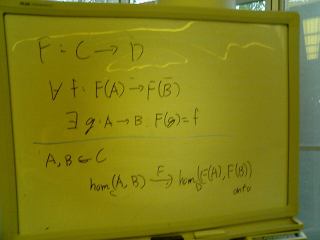 F : C → D
∀ f : F(A) → F(B)
∃ g : A → B . F(g) = f
A, B ∈ C
hom_C(A, B) F→ hom_D(F(A), F(B))
onto